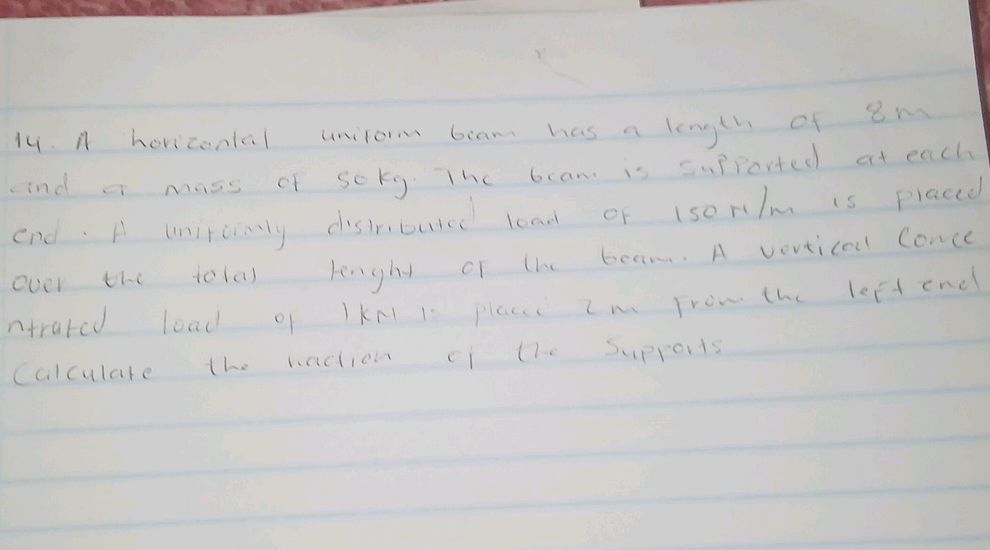 14. A horizontal uniform beam has a length of 8m
and a mass of 50kg. The beam is supported at each
end. A uniformly distributed load of 150N/m is placed
over the total lenght of the beam. A vertical conce
ntrated load of 1kN is placed 2m from the left end
Calculate the reaction of the supports